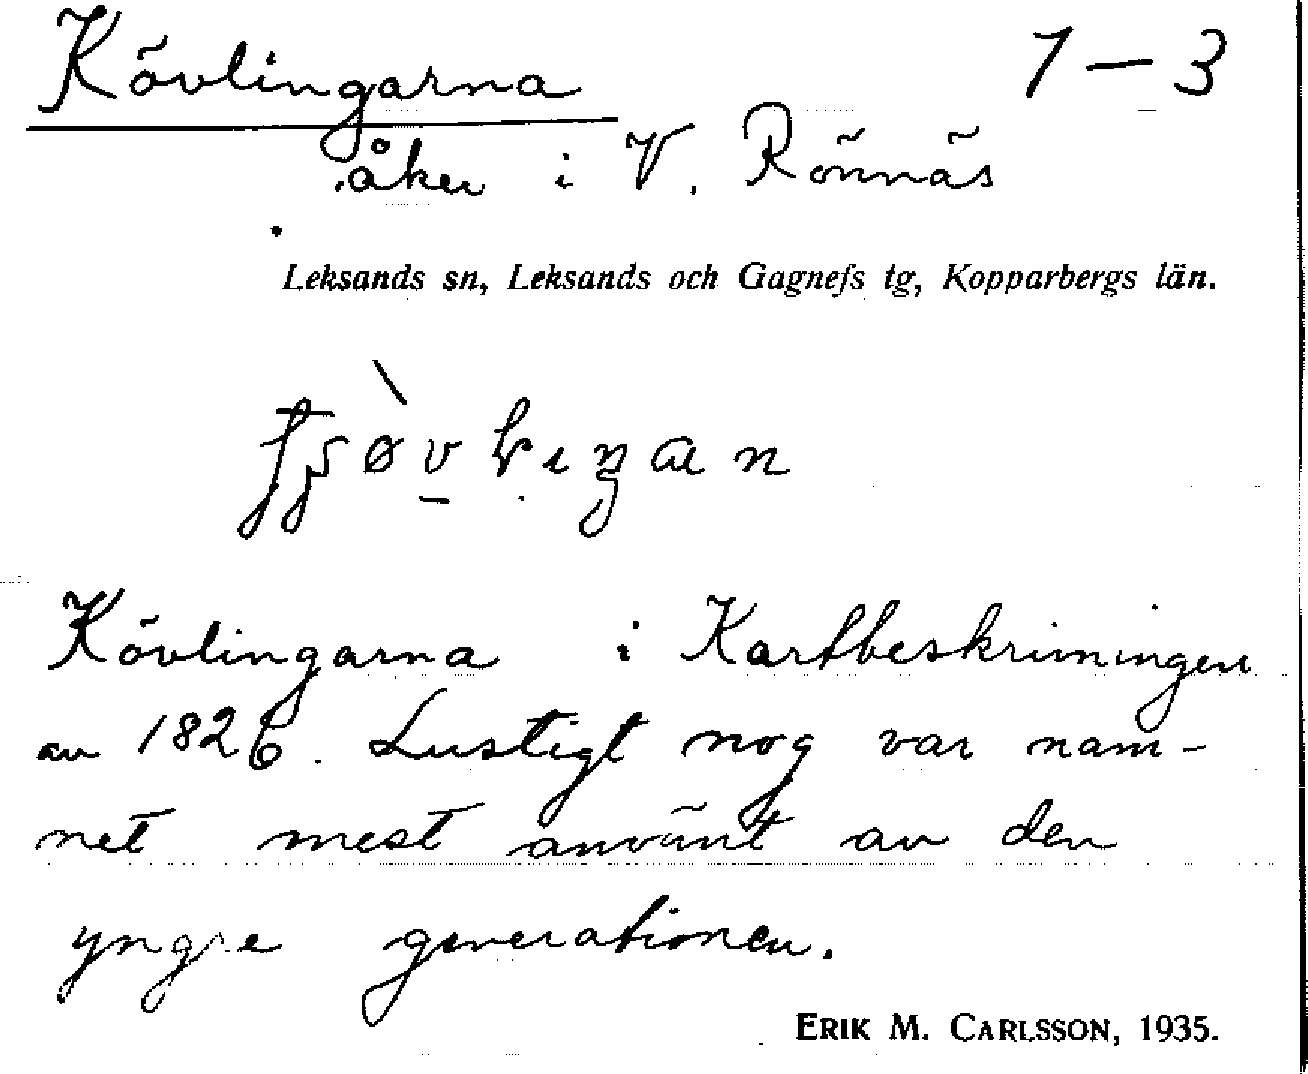 Kövlingarna 1-3
åker i V. Rönnäs
Leksands sn, Leksands och Gagnefs tg, Kopparbergs län.
Kövlingarna i Kartbeskrivningen
av 1826. Lustigt nog var nam-
net mest använt av den
yngre generationen.
ERIK M. CARLSSON, 1935.